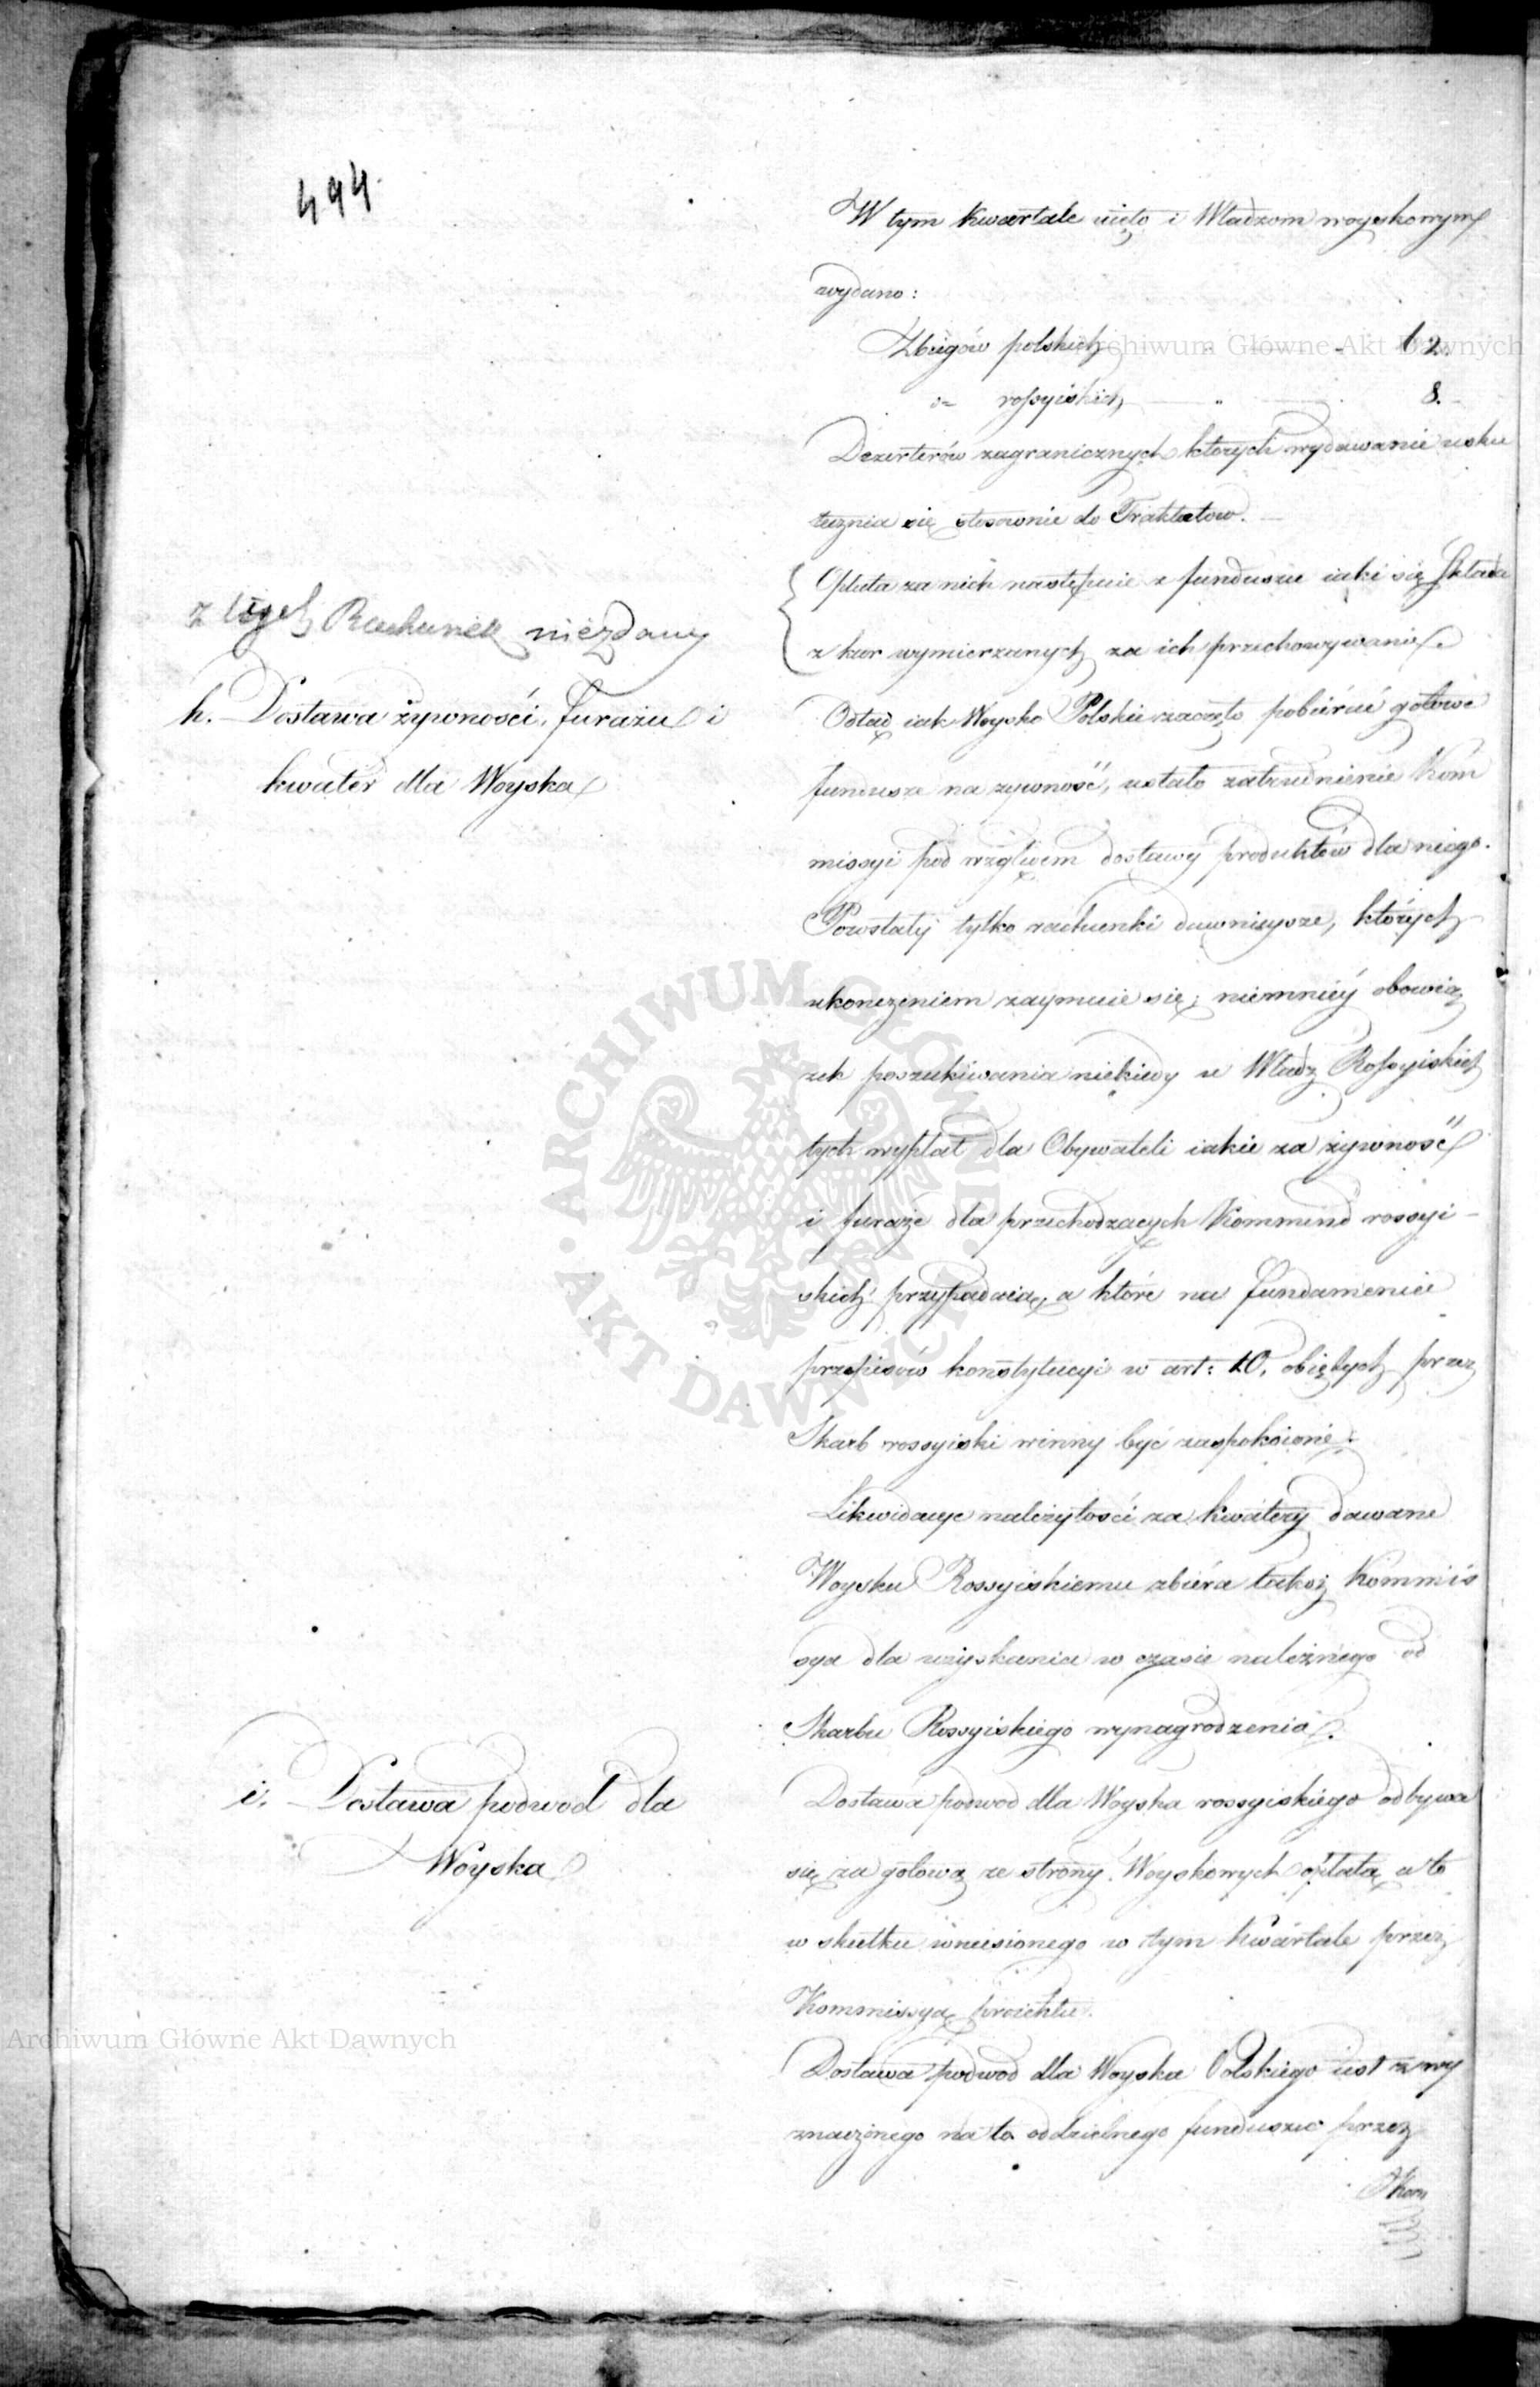 494.
W tym kwartale uięto i Władzom woyskowym
wydano:
Zbiegów polskich 12.
d⁰ rossyiskich 8.
Dezerterów zagranicznych których wydawanie usku
tecznia się stosownie do Traktatow.
Opłata za nich następuie z funduszu iaki się składa
z kar wymierzanych za ich przechowywanie.
z tych Rachunek niezdany
h. Dostawa żywności, furażu i
kwater dla Woyska
Odtąd iak Woysko Polskie zaczęło pobierać gotowe
fundusze na żywność, ustało zatrudnienie Kom
missyi pod względem dostawy produktów dla niego.
Powstały tylko rachunki dawnieysze, których
ukończeniem zaymuie się; niemniéy obowią
zek poszukiwania niekiedy u Władz Rossyiskich
tych wypłat dla Obywateli iakie za żywność
i furaże dla przechodzących Kommend rossyi-
skich przypadaią, a które na fundamencie
przepisów konstytucyi w art: 10. obiętych przez
Skarb rossyiski winny być zaspokoione.
Likwidacye należytości za kwatery dawane
Woysku Rossyiskiemu zbiéra takoż Kommis
sya dla uzyskania w czasie należnego od
Skarbu Rossyiskiego wynagrodzenia.
i. Dostawa podwod dla
Woyska
Dostawa podwod dla Woyska rossyiskiego odbywa
się za gotową ze strony Woyskowych opłatą a to
w skutku wniesionego w tym kwartale przez
Kommissyą proiektu.
Dostawa podwod dla Woyska Polskiego iest z wy
znaczonego na to oddzielnego funduszu przez
Archiwum Główne Akt Dawnych
ARCHIWUM GŁÓWNE AKT DAWNYCH
Archiwum Główne Akt Dawnych